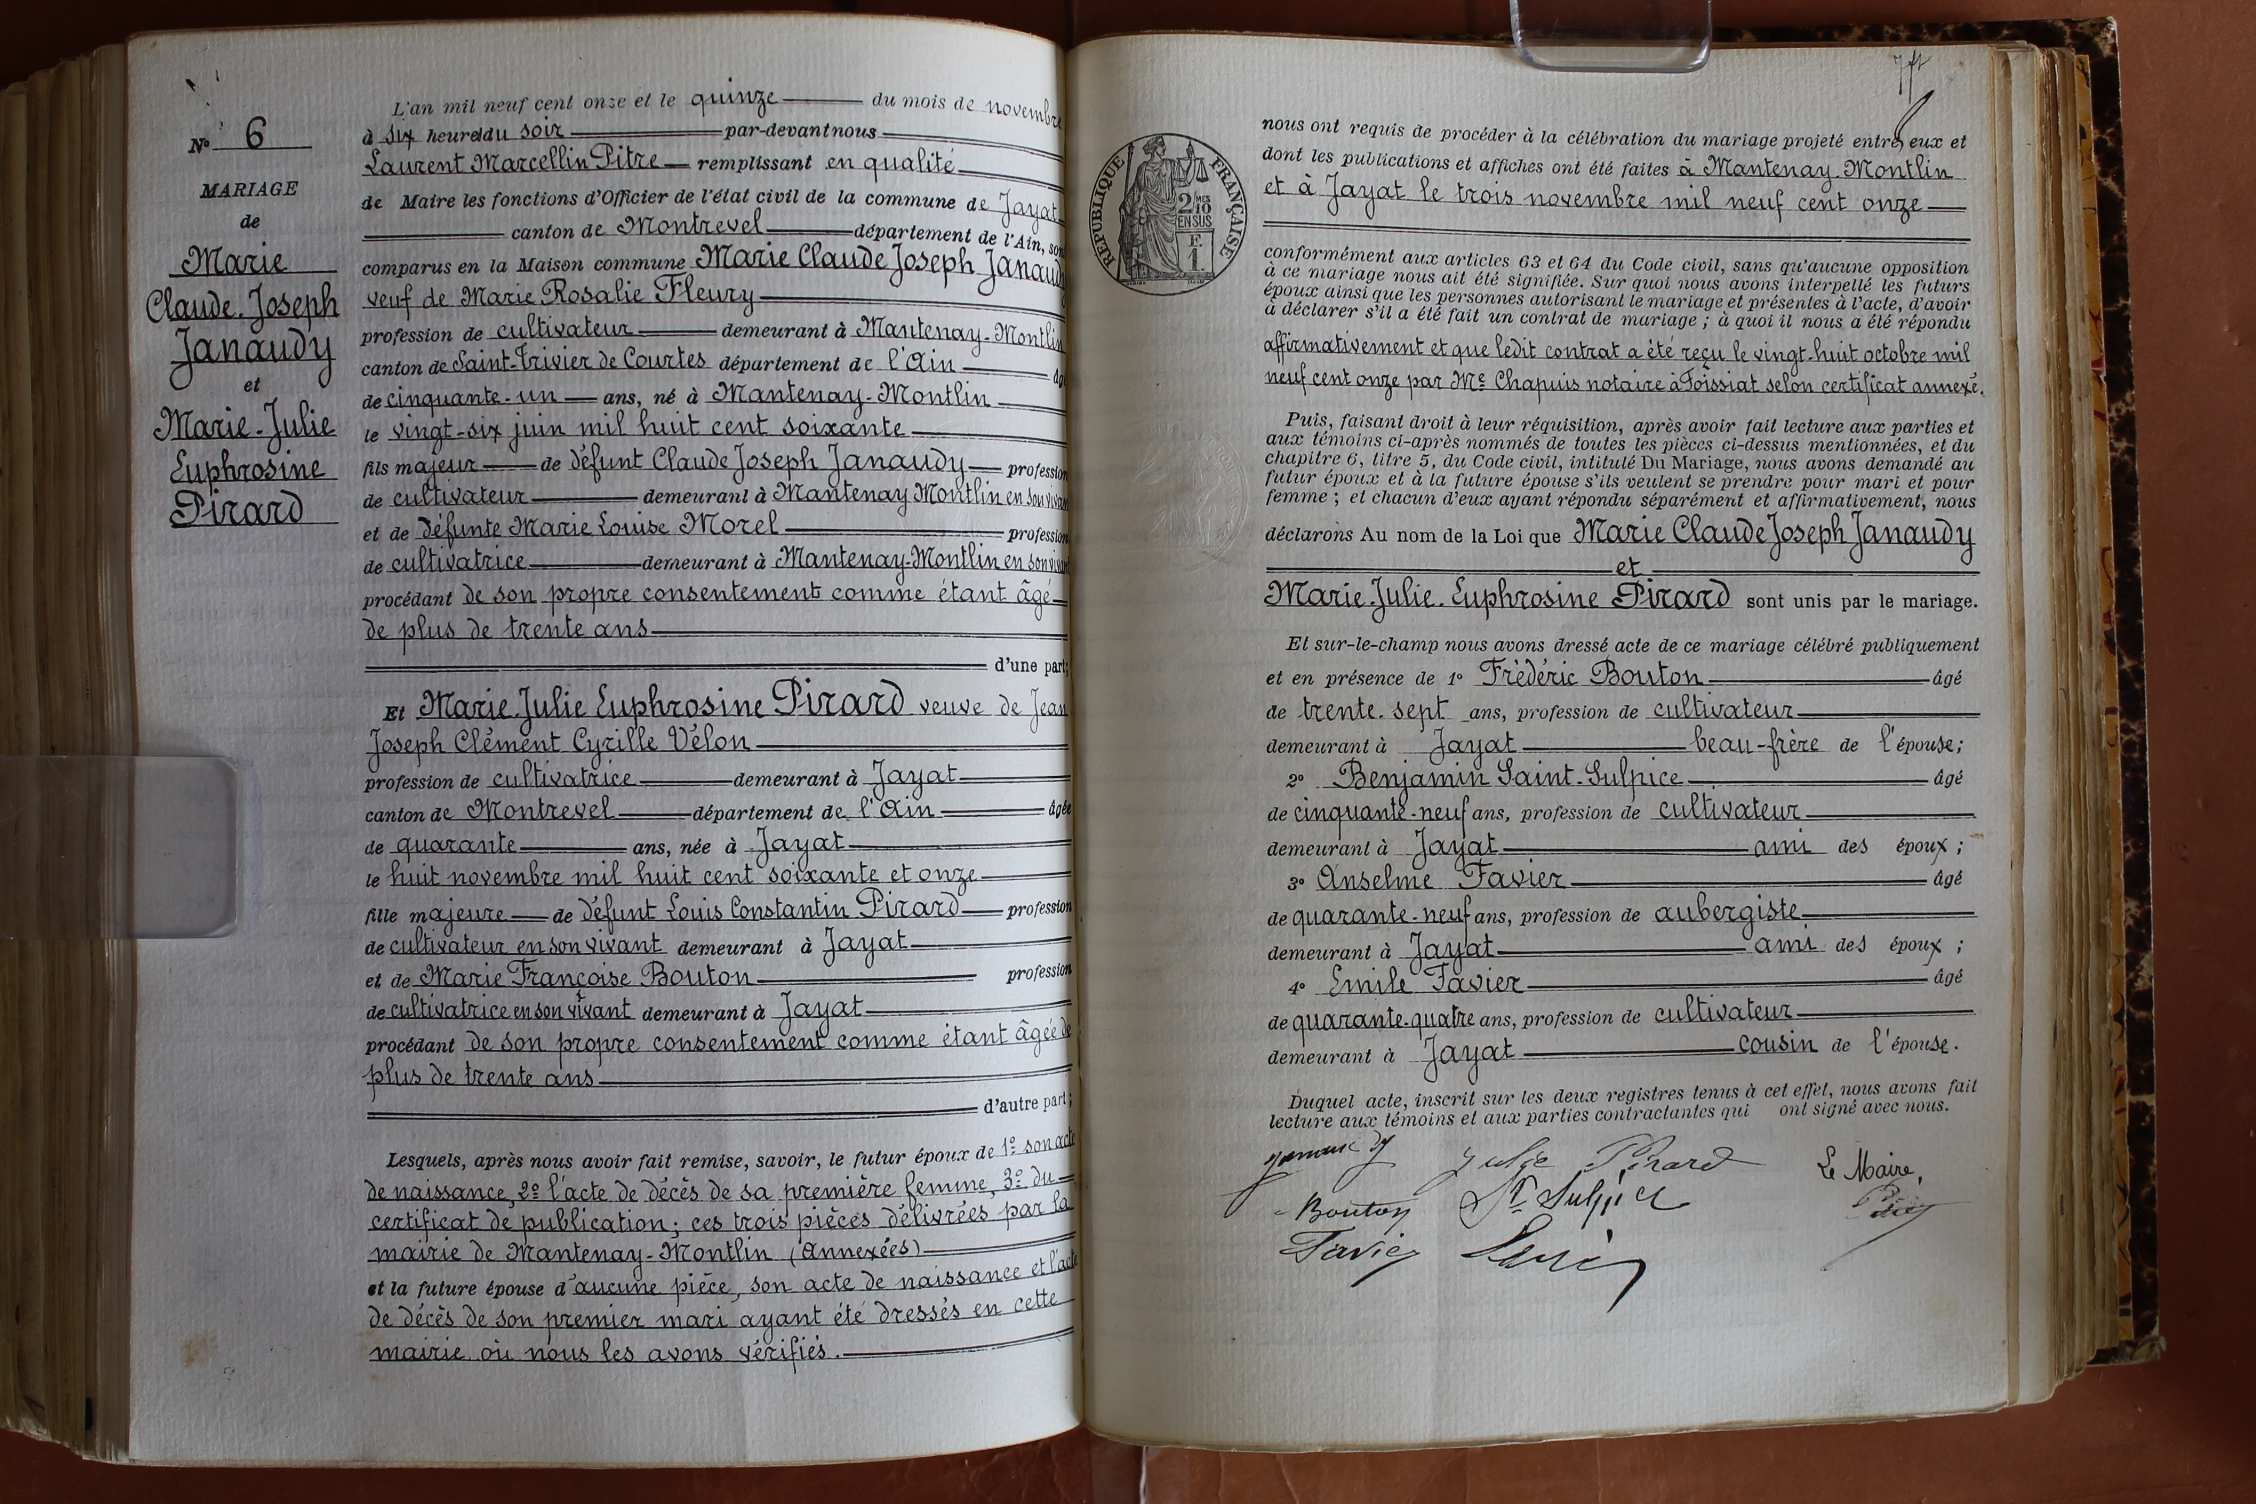 N° 6
MARIAGE
de
Marie
Claude-Joseph
Janaudy
et
Marie-Julie
Euphrosine
Pirard
L'an mil neuf cent onze et le quinze du mois de novembre
à six heures du soir par-devant nous
Laurent Marcellin Pitre remplissant en qualité
de Maire les fonctions d'Officier de l'état civil de la commune de Jayat
canton de Montrevel département de l'Ain, sont
comparus en la Maison commune Marie Claude Joseph Janaudy
veuf de Marie Rosalie Fleury
profession de cultivateur demeurant à Mantenay-Montlin
canton de Saint-Trivier de Courtes département de l'Ain âgé
de cinquante-un ans, né à Mantenay-Montlin
le vingt-six juin mil huit cent soixante
fils majeur de défunt Claude Joseph Janaudy profession
de cultivateur demeurant à Mantenay Montlin en son vivant
et de défunte Marie Louise Morel profession
de cultivatrice demeurant à Mantenay-Montlin en son vivant
procédant de son propre consentement comme étant âgé
de plus de trente ans
d'une part;
Et Marie-Julie Euphrosine Pirard veuve de Jean
Joseph Clément Cyrille Vélon
profession de cultivatrice demeurant à Jayat
canton de Montrevel département de l'Ain âgée
de quarante ans, née à Jayat
le huit novembre mil huit cent soixante et onze
fille majeure de défunt Louis Constantin Pirard profession
de cultivateur en son vivant demeurant à Jayat
et de Marie Françoise Bouton profession
de cultivatrice en son vivant demeurant à Jayat
procédant de son propre consentement comme étant âgée de
plus de trente ans
d'autre part;
Lesquels, après nous avoir fait remise, savoir, le futur époux de 1° son acte
de naissance, 2° l'acte de décès de sa première femme, 3° du
certificat de publication; ces trois pièces délivrées par la
mairie de Mantenay-Montlin (Annexées)
et la future épouse d'aucune pièce, son acte de naissance et l'acte
de décès de son premier mari ayant été dressés en cette
mairie où nous les avons vérifiés.
RÉPUBLIQUE FRANÇAISE
2/10 MES
EN SUS
F.
1.
nous ont requis de procéder à la célébration du mariage projeté entre eux et
dont les publications et affiches ont été faites à Mantenay-Montlin
et à Jayat le trois novembre mil neuf cent onze
conformément aux articles 63 et 64 du Code civil, sans qu'aucune opposition
à ce mariage nous ait été signifiée. Sur quoi nous avons interpellé les futurs
époux ainsi que les personnes autorisant le mariage et présentes à l'acte, d'avoir
à déclarer s'il a été fait un contrat de mariage; à quoi il nous a été répondu
affirmativement et que ledit contrat a été reçu le vingt-huit octobre mil
neuf cent onze par Me Chapuis notaire à Foissiat selon certificat annexé.
Puis, faisant droit à leur réquisition, après avoir fait lecture aux parties et
aux témoins ci-après nommés de toutes les pièces ci-dessus mentionnées, et du
chapitre 6, titre 5, du Code civil, intitulé Du Mariage, nous avons demandé au
futur époux et à la future épouse s'ils veulent se prendre pour mari et pour
femme; et chacun d'eux ayant répondu séparément et affirmativement, nous
déclarons Au nom de la Loi que Marie Claude Joseph Janaudy
et
Marie-Julie-Euphrosine Pirard sont unis par le mariage.
Et sur-le-champ nous avons dressé acte de ce mariage célébré publiquement
et en présence de 1° Frédéric Bouton âgé
de trente-sept ans, profession de cultivateur
demeurant à Jayat beau-frère de l'épouse;
2° Benjamin Saint-Sulpice âgé
de cinquante-neuf ans, profession de cultivateur
demeurant à Jayat ami des époux;
3° Anselme Favier âgé
de quarante-neuf ans, profession de aubergiste
demeurant à Jayat ami des époux;
4° Emile Favier âgé
de quarante-quatre ans, profession de cultivateur
demeurant à Jayat cousin de l'épouse.
Duquel acte, inscrit sur les deux registres tenus à cet effet, nous avons fait
lecture aux témoins et aux parties contractantes qui ont signé avec nous.
Janaudy Julie Pirard Le Maire,
Bouton St Sulpice
Favier